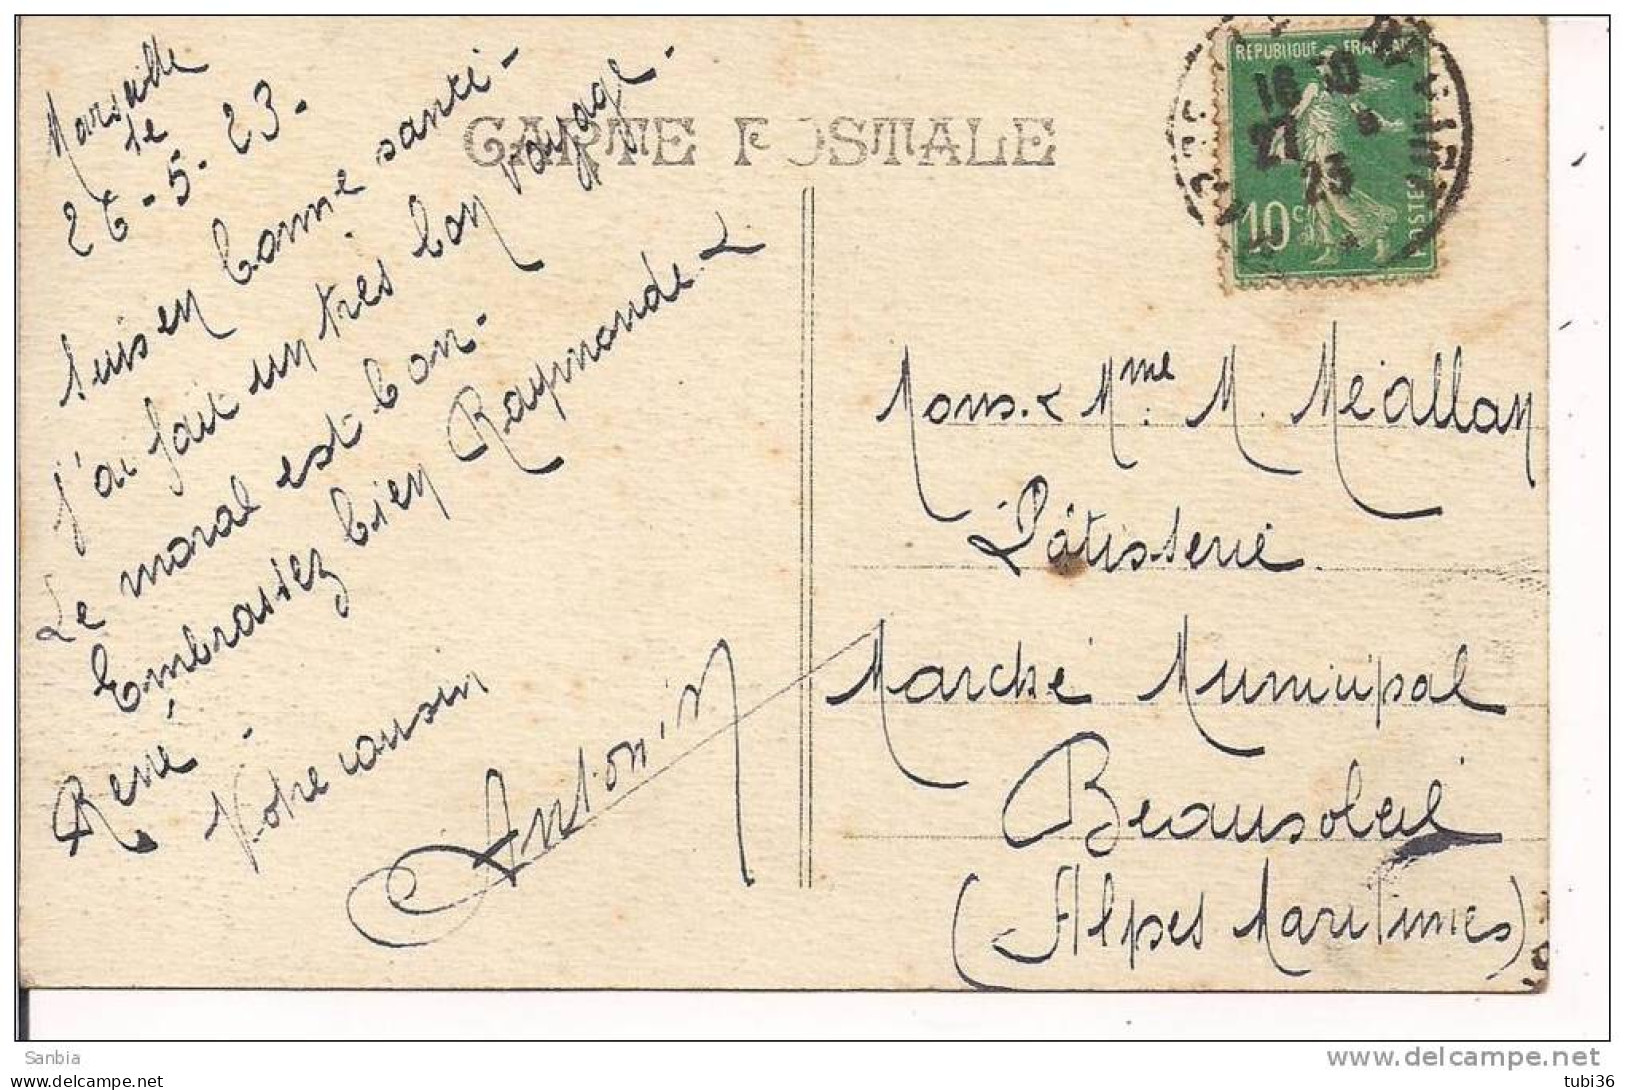 CARTE POSTALE
Marseille
le
26-5-23.
Suis en bonne santé -
J'ai fait un très bon voyage -
Le moral est bon -
Embrassez bien Raymonde &
René.
Votre cousin
Antonin
RÉPUBLIQUE FRANÇAISE
16 30
27 5
23
10c
POSTES
Mons. & Mme. M. Méallan
Pâtisserie
Marché Municipal
Beausoleil
(Alpes Maritimes)
Sanbia
www.delcampe.net
tubi36